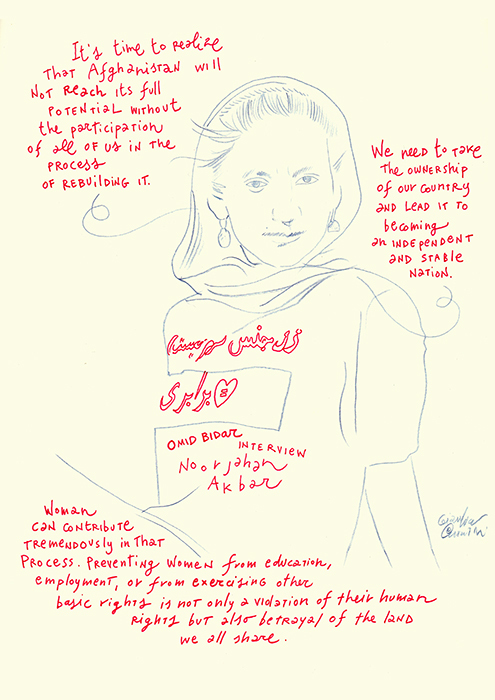 It's time to realize
that Afghanistan will
not reach its full
potential without
the participation
of all of us in the
process
of rebuilding it.
We need to take
the ownership
of our country
and lead it to
becoming
an independent
and stable
nation.
برابری
Omid Bidar
interview
Noorjahan
Akbar
Woman
can contribute
tremendously in that
process. Preventing women from education,
employment, or from exercising other
basic rights is not only a violation of their human
rights but also betrayal of the land
we all share.